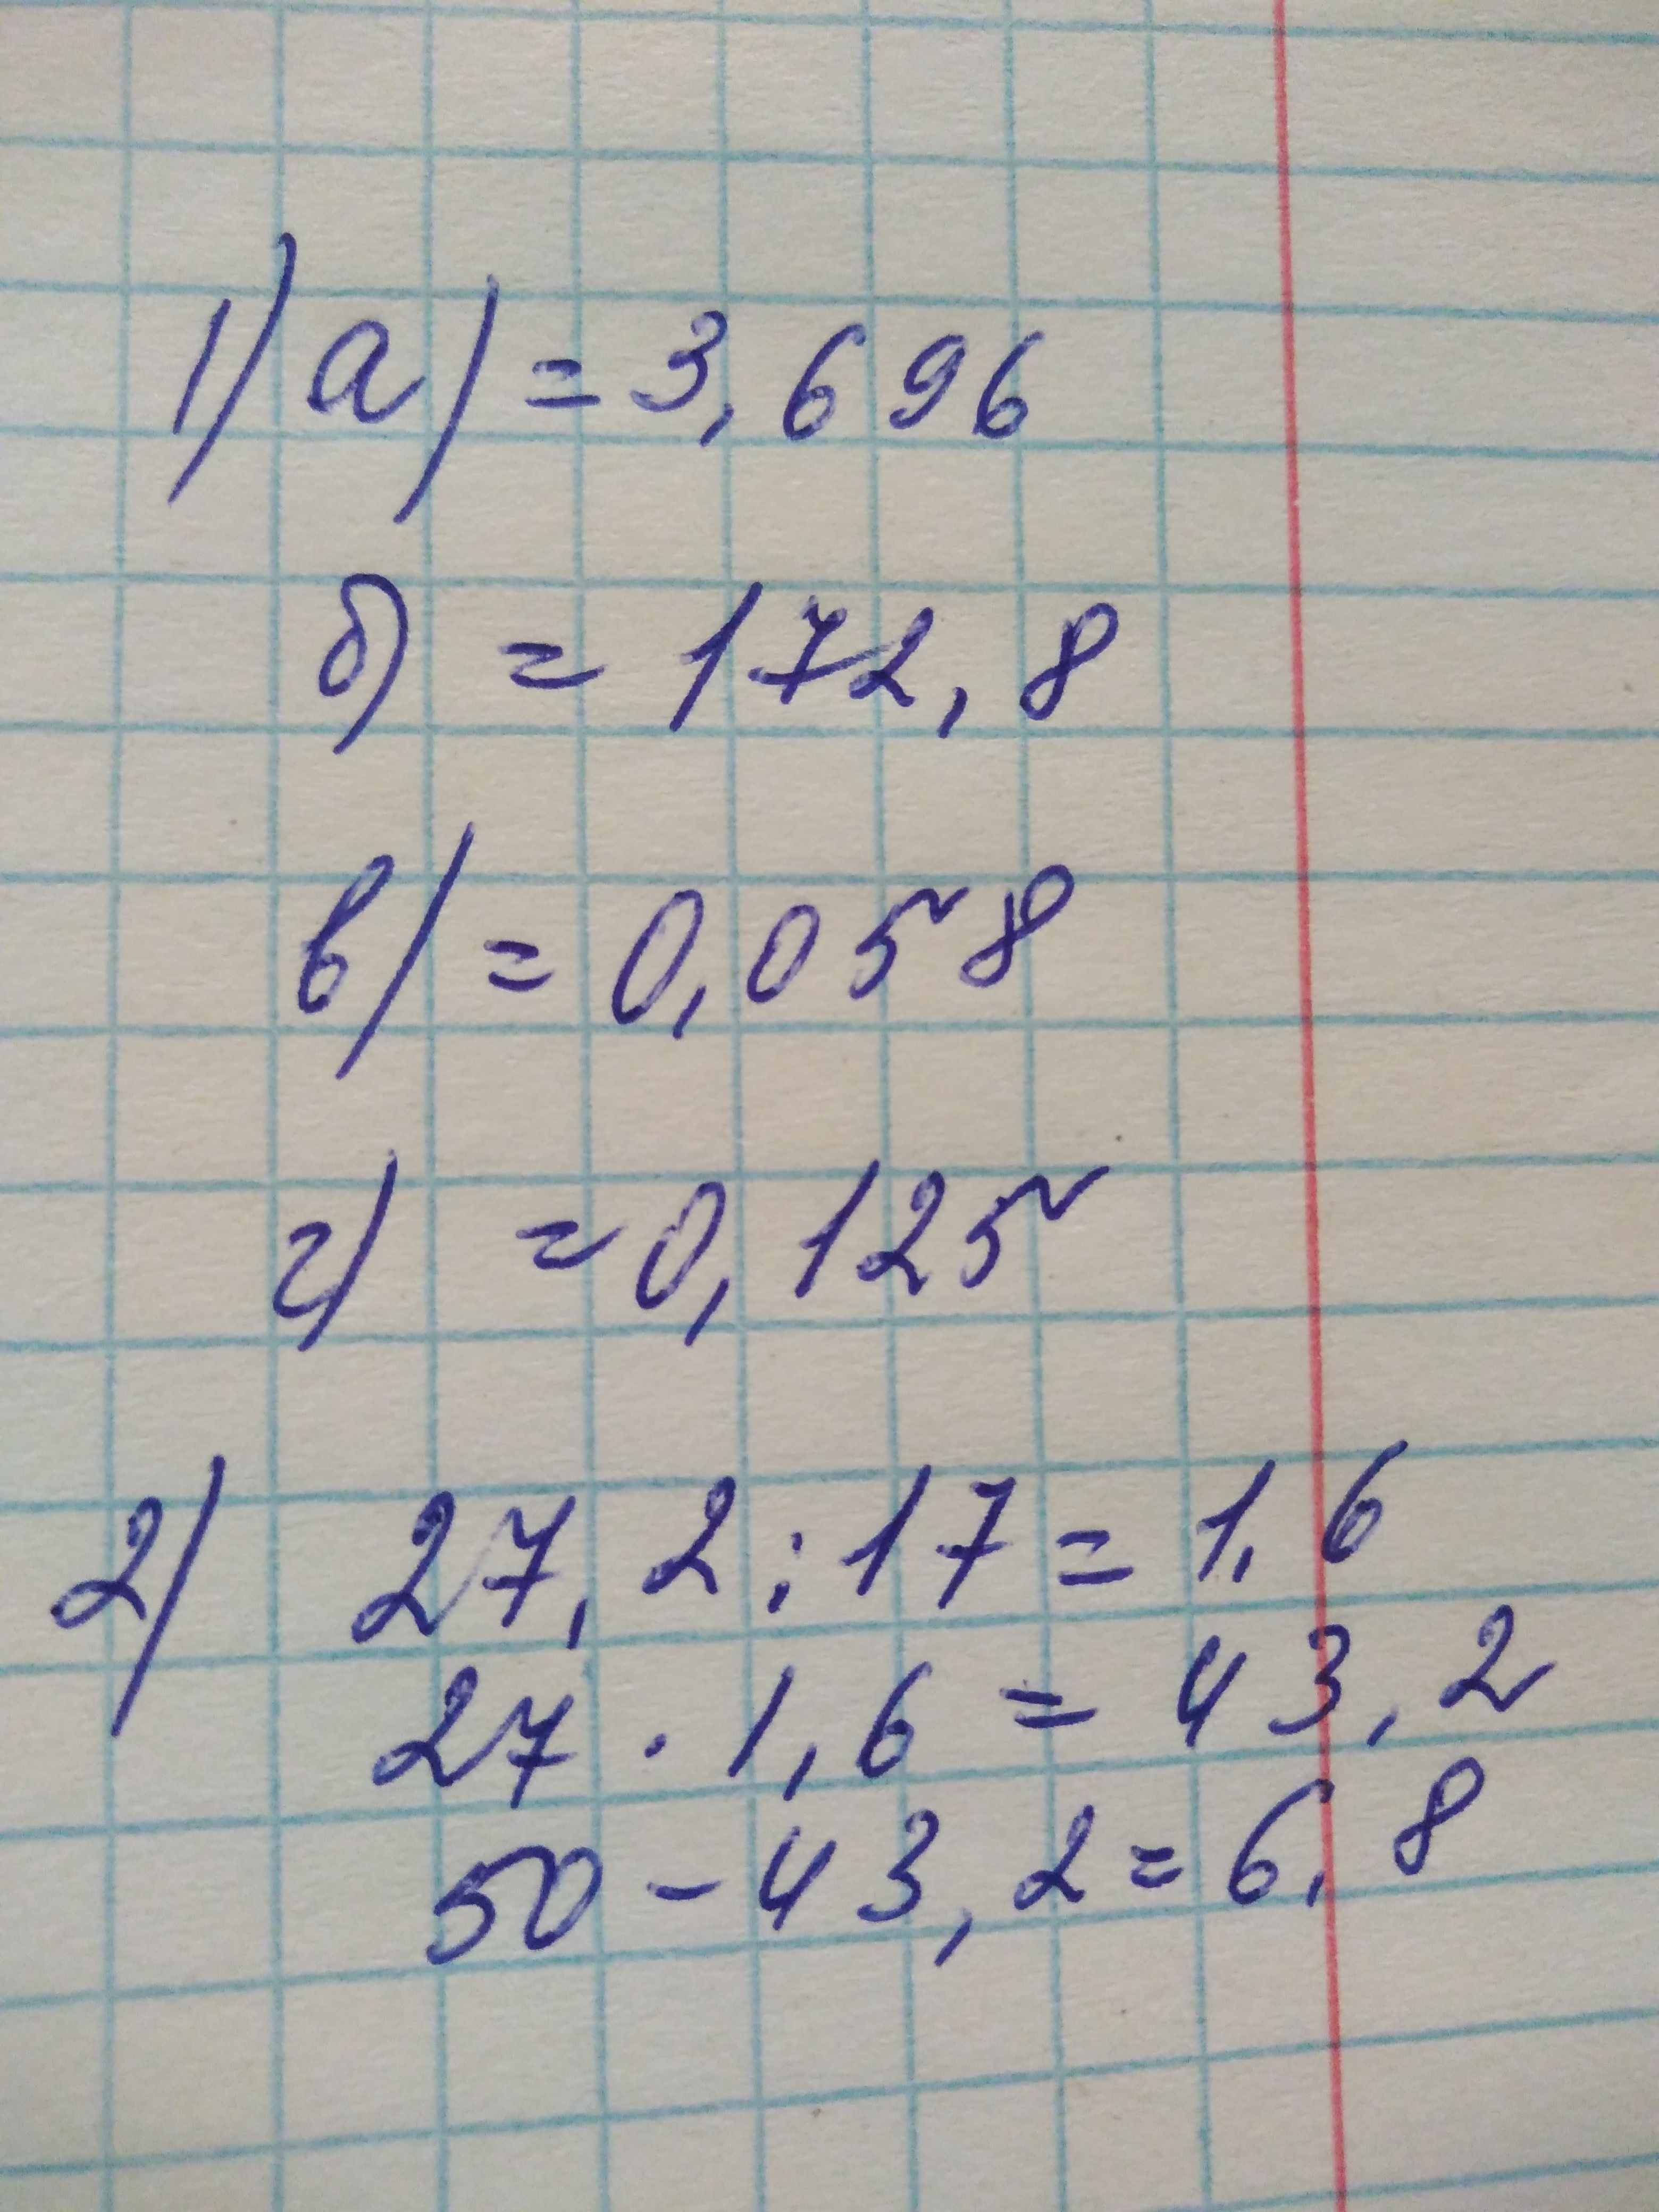 1) а) = 3,696
б) = 172,8
в) = 0,058
г) = 0,125
2) 27,2 : 17 = 1,6
27 · 1,6 = 43,2
50 - 43,2 = 6,8